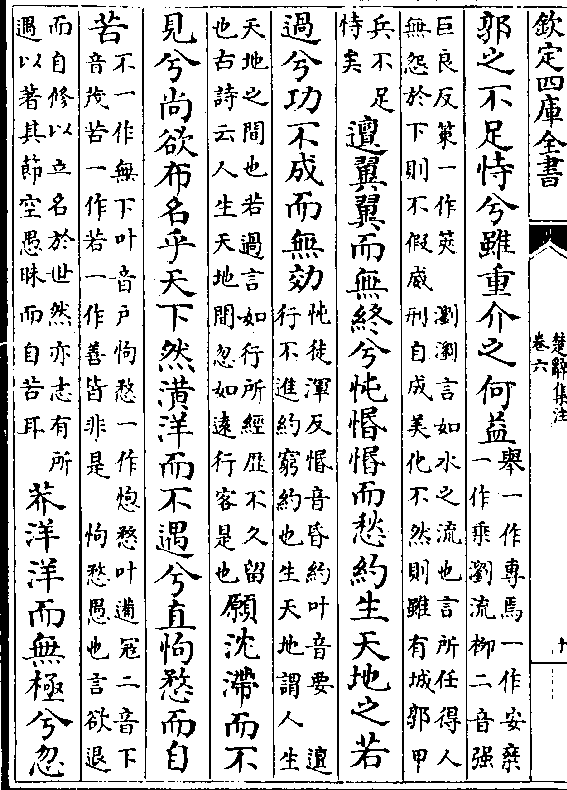 欽定四庫全書
楚辭集注
卷六
十
郭之不足恃兮雖重介之何益
舉一作專焉一作安椉
一作乘瀏流柳二音强
巨良反策一作筴 瀏瀏言如水之流也言所任得人
無怨於下則不假威刑自成美化不然則雖有城郭甲
兵不足
恃矣
邅翼翼而無終兮忳惽惽而愁約生天地之若
過兮功不成而無効
忳徒渾反惽音昏約叶音要 邅
行不進約窮約也生天地謂人生
天地之間也若過言如行所經歴不久留
也古詩云人生天地間忽如逺行客是也
願沈滯而不
見兮尚欲布名乎天下然潢洋而不遇兮直怐愗而自
苦
不一作無下叶音户怐愗一作愗叶遘冦二音下
音茂苦一作若一作善皆非是 怐愗愚也言欲退
而自修以立名於世然亦志有所
遇以著其節空愚昧而自苦耳
莽洋洋而無極兮忽